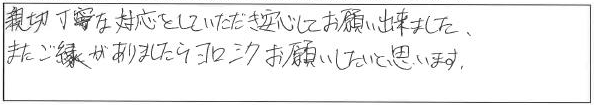 親切丁寧な対応をしていただき安心してお願い出来ました、
またご縁がありましたらヨロシクお願いしたいと思います。